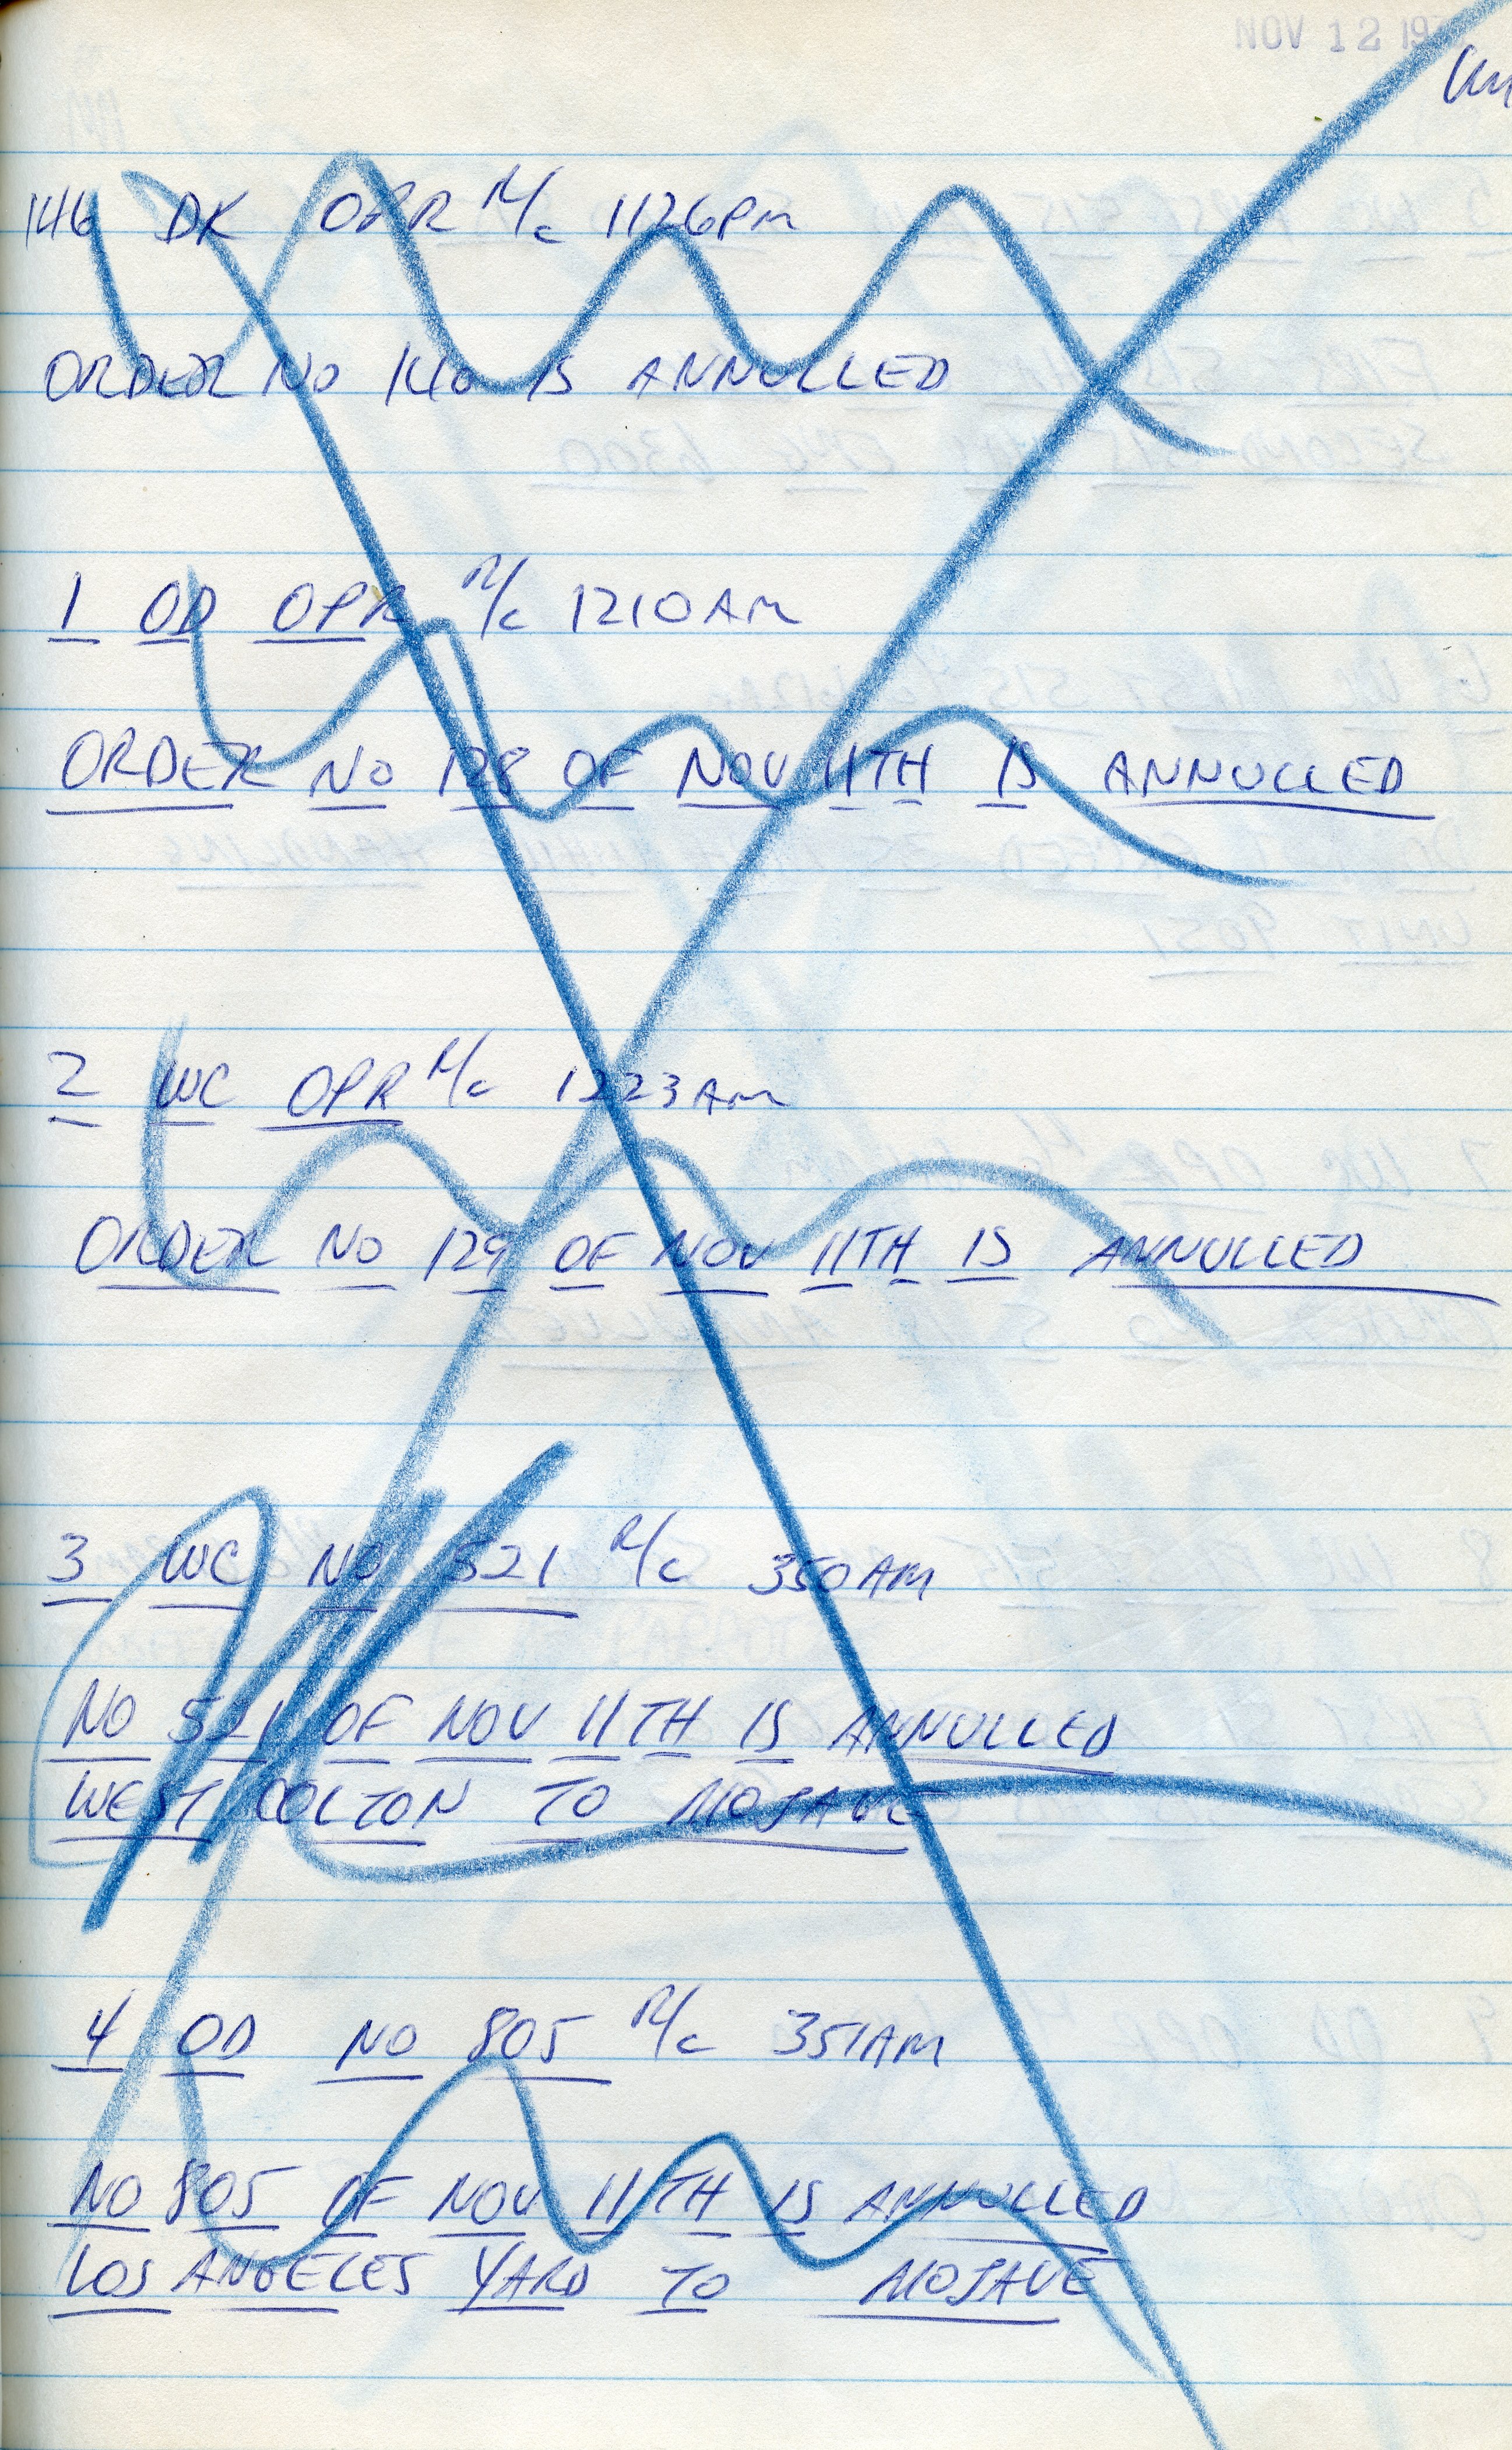 NOV 12 19
146 DK OPR M/c 1126PM
ORDER NO 146 IS ANNULLED
1 OD OPR M/c 1210AM
ORDER NO 128 OF NOV 11TH IS ANNULLED
2 WC OPR M/c 1223AM
ORDER NO 129 OF NOV 11TH IS ANNULLED
3 WC NO 521 M/c 350AM
NO 521 OF NOV 11TH IS ANNULLED
WEST COLTON TO MOJAVE
4 OD NO 805 M/c 351AM
NO 805 OF NOV 11TH IS ANNULLED
LOS ANGELES YARD TO MOJAVE